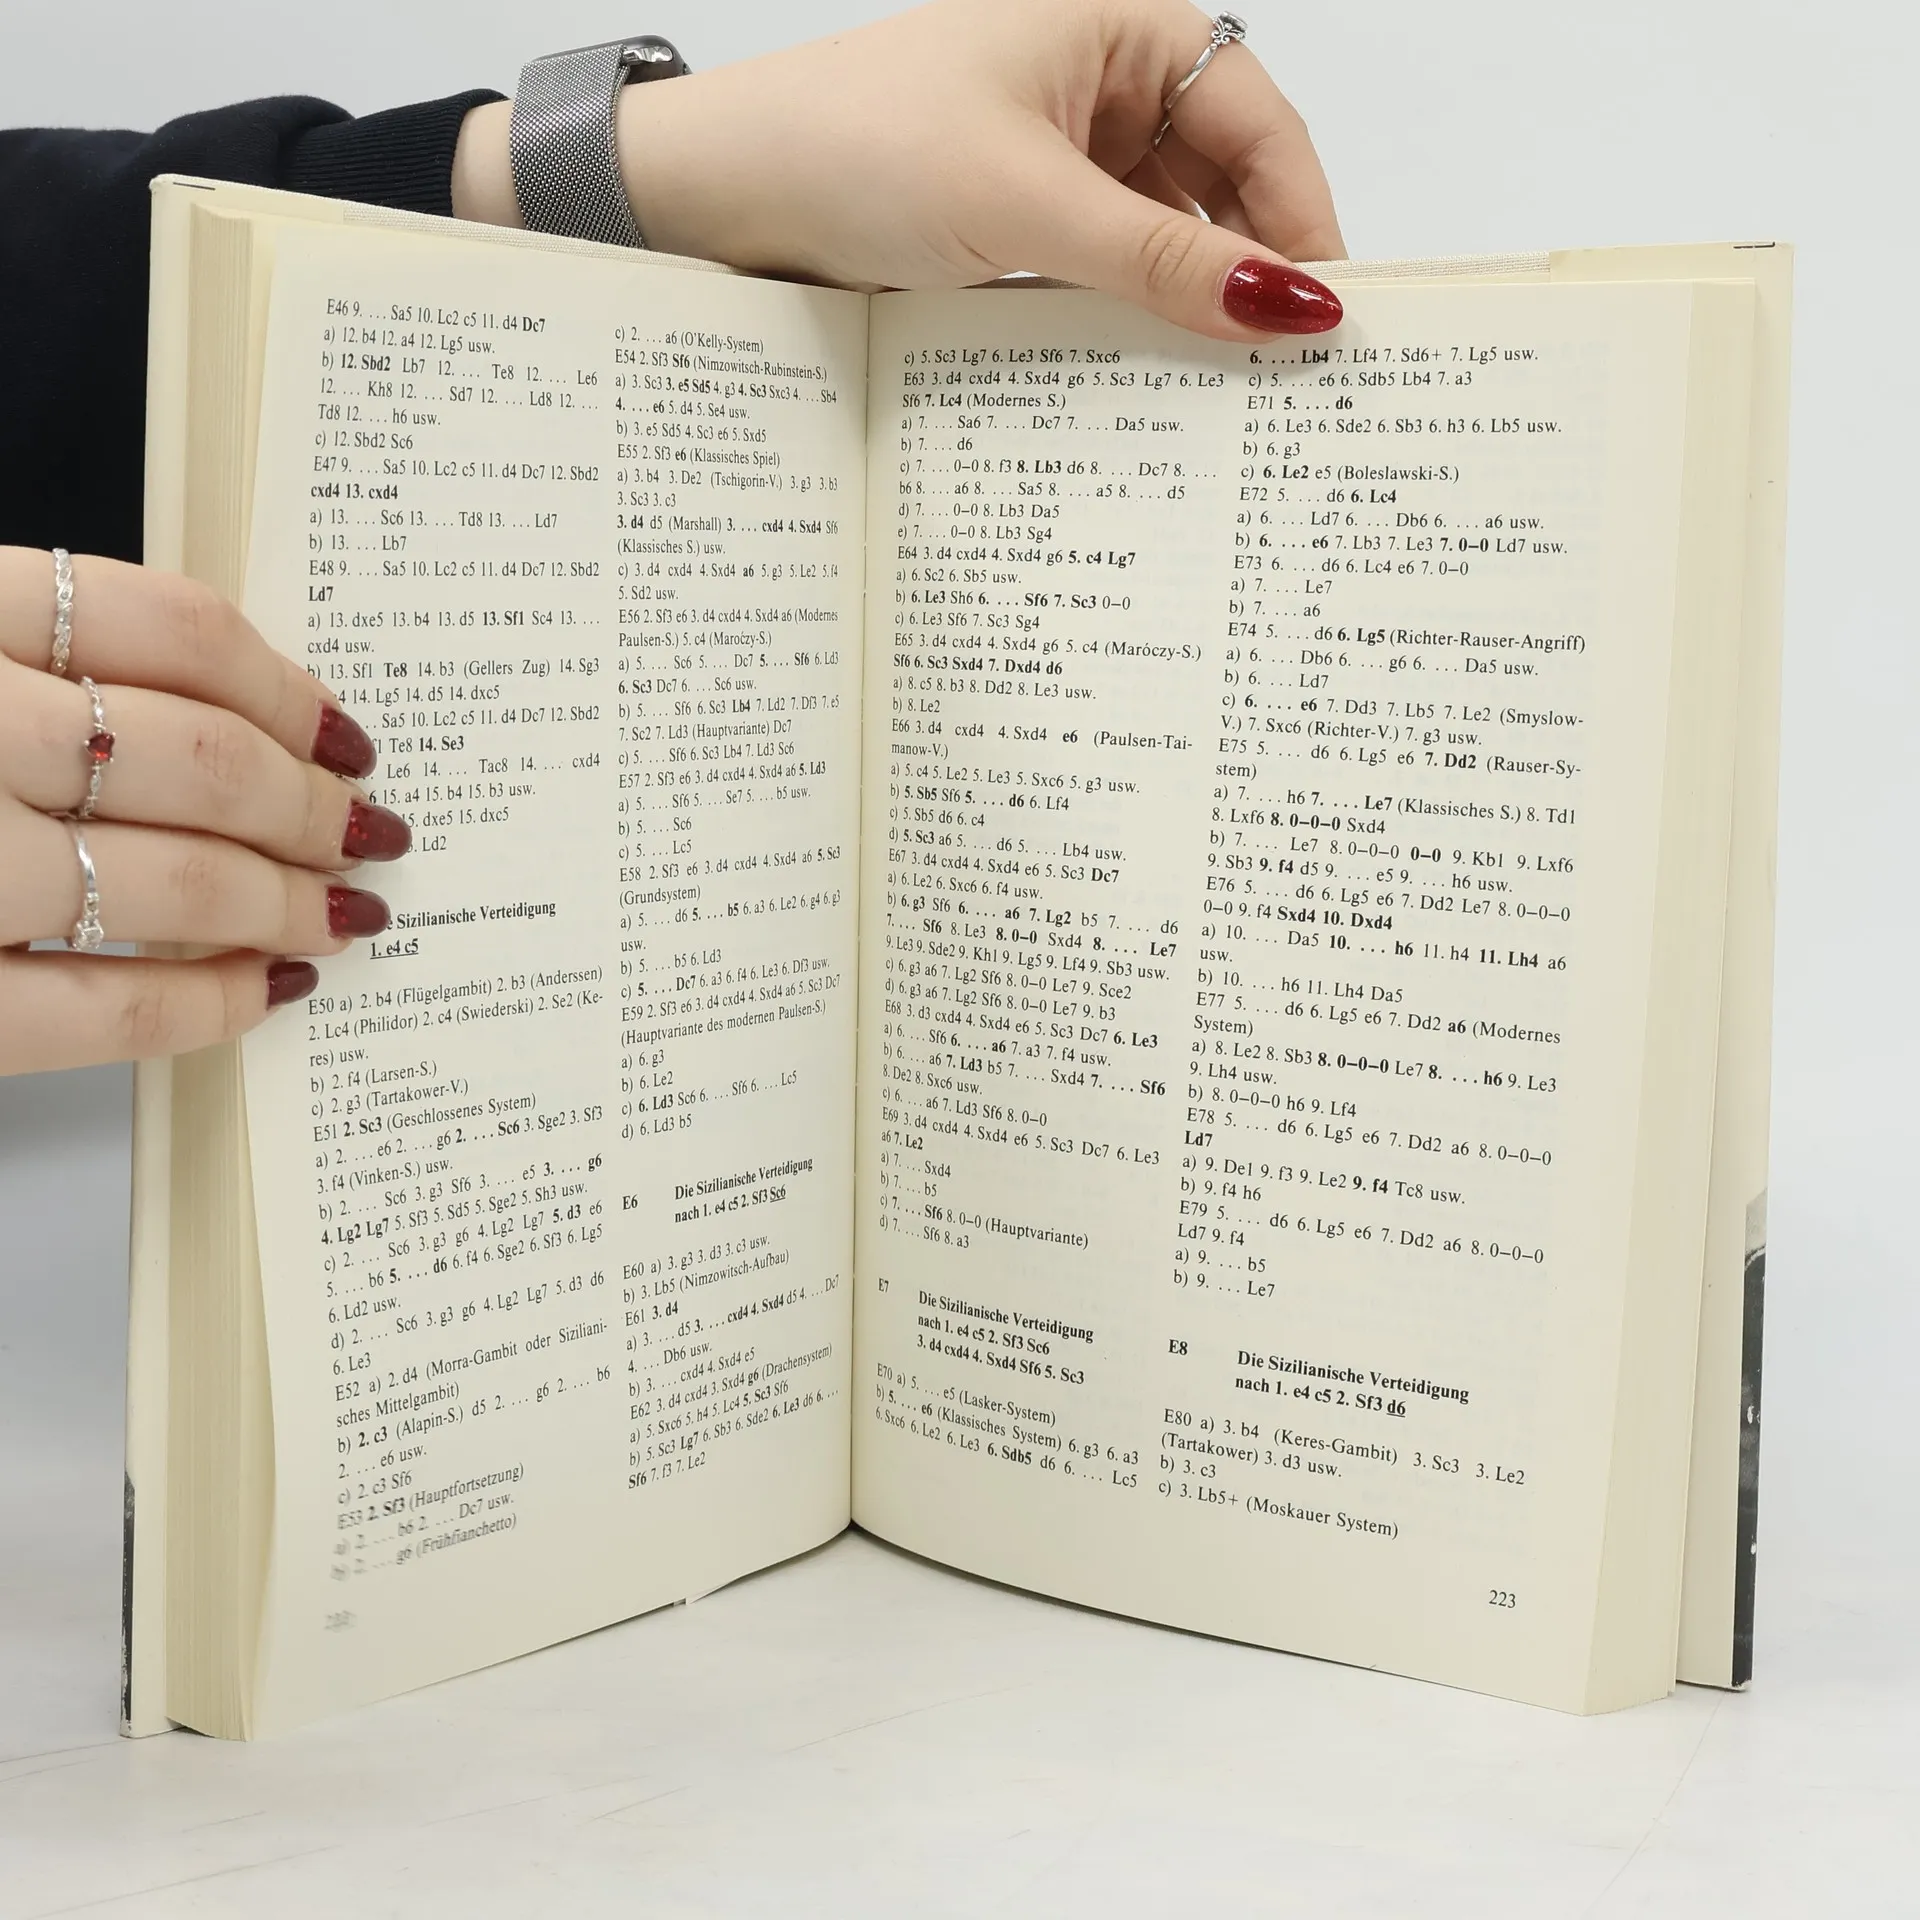 E46 9. … Sa5 10. Lc2 c5 11. d4 Dc7
a) 12. b4 12. a4 12. Lg5 usw.
b) 12. Sbd2 Lb7 12. … Te8 12. … Le6
12. … Kh8 12. … Sd7 12. … Ld8 12. …
Td8 12. … h6 usw.
c) 12. Sbd2 Sc6
E47 9. … Sa5 10. Lc2 c5 11. d4 Dc7 12. Sbd2
cxd4 13. cxd4
a) 13. … Sc6 13. … Td8 13. … Ld7
b) 13. … Lb7
E48 9. … Sa5 10. Lc2 c5 11. d4 Dc7 12. Sbd2
Ld7
a) 13. dxe5 13. b4 13. d5 13. Sf1 Sc4 13. …
cxd4 usw.
b) 13. Sf1 Te8 14. b3 (Gellers Zug) 14. Sg3
14. Lg5 14. d5 14. dxc5
Sa5 10. Lc2 c5 11. d4 Dc7 12. Sbd2
Te8 14. Se3
Le6 14. … Tac8 14. … cxd4
15. a4 15. b4 15. b3 usw.
15. dxe5 15. dxc5
Ld2
Sizilianische Verteidigung
1. e4 c5
E50 a) 2. b4 (Flügelgambit) 2. b3 (Anderssen)
2. Lc4 (Philidor) 2. c4 (Swiederski) 2. Se2 (Ke-
res) usw.
b) 2. f4 (Larsen-S.)
c) 2. g3 (Tartakower-V.)
E51 2. Sc3 (Geschlossenes System)
a) 2. … e6 2. … g6 2. … Sc6 3. Sge2 3. Sf3
3. f4 (Vinken-S.) usw.
b) 2. … Sc6 3. g3 Sf6 3. … e5 3. … g6
4. Lg2 Lg7 5. Sf3 5. Sd5 5. Sge2 5. Sh3 usw.
c) 2. … Sc6 3. g3 g6 4. Lg2 Lg7 5. d3 e6
5. … b6 5. … d6 6. f4 6. Sge2 6. Sf3 6. Lg5
6. Ld2 usw.
d) 2. … Sc6 3. g3 g6 4. Lg2 Lg7 5. d3 d6
6. Le3
E52 a) 2. d4 (Morra-Gambit oder Siziliani-
sches Mittelgambit)
b) 2. c3 (Alapin-S.) d5 2. … g6 2. … b6
2. … e6 usw.
c) 2. c3 Sf6
E53 2. Sf3 (Hauptfortsetzung)
a) 2. … b6 2. … Dc7 usw.
b) 2. … g6 (Frühfianchetto)
c) 2. … a6 (O'Kelly-System)
E54 2. Sf3 Sf6 (Nimzowitsch-Rubinstein-S.)
a) 3. Sc3 3. e5 Sd5 4. g3 4. Sc3 Sxc3 4. … Sb4
4. … e6 5. d4 5. Se4 usw.
b) 3. e5 Sd5 4. Sc3 e6 5. Sxd5
E55 2. Sf3 e6 (Klassisches Spiel)
a) 3. b4 3. De2 (Tschigorin-V.) 3. g3 3. b3
3. Sc3 3. c3
3. d4 d5 (Marshall) 3. … cxd4 4. Sxd4 Sf6
(Klassisches S.) usw.
c) 3. d4 cxd4 4. Sxd4 a6 5. g3 5. Le2 5. f4
5. Sd2 usw.
E56 2. Sf3 e6 3. d4 cxd4 4. Sxd4 a6 (Modernes
Paulsen-S.) 5. c4 (Maroćzy-S.)
a) 5. … Sc6 5. … Dc7 5. … Sf6 6. Ld3
6. Sc3 Dc7 6. … Sc6 usw.
b) 5. … Sf6 6. Sc3 Lb4 7. Ld2 7. Df3 7. e5
7. Sc2 7. Ld3 (Hauptvariante) Dc7
c) 5. … Sf6 6. Sc3 Lb4 7. Ld3 Sc6
E57 2. Sf3 e6 3. d4 cxd4 4. Sxd4 a6 5. Ld3
a) 5. … Sf6 5. … Se7 5. … b5 usw.
b) 5. … Sc6
c) 5. … Lc5
E58 2. Sf3 e6 3. d4 cxd4 4. Sxd4 a6 5. Sc3
(Grundsystem)
a) 5. … d6 5. … b5 6. a3 6. Le2 6. g4 6. g3
usw.
b) 5. … b5 6. Ld3
c) 5. … Dc7 6. a3 6. f4 6. Le3 6. Df3 usw.
E59 2. Sf3 e6 3. d4 cxd4 4. Sxd4 a6 5. Sc3 Dc7
(Hauptvariante des modernen Paulsen-S.)
a) 6. g3
b) 6. Le2
c) 6. Ld3 Sc6 6. … Sf6 6. … Lc5
d) 6. Ld3 b5
E6 Die Sizilianische Verteidigung
nach 1. e4 c5 2. Sf3 Sc6
E60 a) 3. g3 3. d3 3. c3 usw.
b) 3. Lb5 (Nimzowitsch-Aufbau)
E61 3. d4
a) 3. … d5 3. … cxd4 4. Sxd4 d5 4. … Dc7
4. … Db6 usw.
b) 3. … cxd4 4. Sxd4 e5
E62 3. d4 cxd4 3. Sxd4 g6 (Drachensystem)
a) 5. Sxc6 5. h4 5. Lc4 5. Sc3 Sf6
b) 5. Sc3 Lg7 6. Sb3 6. Sde2 6. Le3 d6 6. …
Sf6 7. f3 7. Le2
c) 5. Sc3 Lg7 6. Le3 Sf6 7. Sxc6
E63 3. d4 cxd4 4. Sxd4 g6 5. Sc3 Lg7 6. Le3
Sf6 7. Lc4 (Modernes S.)
a) 7. … Sa6 7. … Dc7 7. … Da5 usw.
b) 7. … d6
c) 7. … 0–0 8. f3 8. Lb3 d6 8. … Dc7 8. …
b6 8. … a6 8. … Sa5 8. … a5 8. … d5
d) 7. … 0–0 8. Lb3 Da5
e) 7. … 0–0 8. Lb3 Sg4
E64 3. d4 cxd4 4. Sxd4 g6 5. c4 Lg7
a) 6. Sc2 6. Sb5 usw.
b) 6. Le3 Sh6 6. … Sf6 7. Sc3 0–0
c) 6. Le3 Sf6 7. Sc3 Sg4
E65 3. d4 cxd4 4. Sxd4 g6 5. c4 (Maróczy-S.)
Sf6 6. Sc3 Sxd4 7. Dxd4 d6
a) 8. c5 8. b3 8. Dd2 8. Le3 usw.
b) 8. Le2
E66 3. d4 cxd4 4. Sxd4 e6 (Paulsen-Tai-
manow-V.)
a) 5. c4 5. Le2 5. Le3 5. Sxc6 5. g3 usw.
b) 5. Sb5 Sf6 5. … d6 6. Lf4
c) 5. Sb5 d6 6. c4
d) 5. Sc3 a6 5. … d6 5. … Lb4 usw.
E67 3. d4 cxd4 4. Sxd4 e6 5. Sc3 Dc7
a) 6. Le2 6. Sxc6 6. f4 usw.
b) 6. g3 Sf6 6. … a6 7. Lg2 b5 7. … d6
7. … Sf6 8. Le3 8. 0–0 Sxd4 8. … Le7
9. Le3 9. Sde2 9. Kh1 9. Lg5 9. Lf4 9. Sb3 usw.
c) 6. g3 a6 7. Lg2 Sf6 8. 0–0 Le7 9. Sce2
d) 6. g3 a6 7. Lg2 Sf6 8. 0–0 Le7 9. b3
E68 3. d3 cxd4 4. Sxd4 e6 5. Sc3 Dc7 6. Le3
a) 6. … Sf6 6. … a6 7. a3 7. f4 usw.
b) 6. … a6 7. Ld3 b5 7. … Sxd4 7. … Sf6
8. De2 8. Sxc6 usw.
c) 6. … a6 7. Ld3 Sf6 8. 0–0
E69 3. d4 cxd4 4. Sxd4 e6 5. Sc3 Dc7 6. Le3
a6 7. Le2
a) 7. … Sxd4
b) 7. … b5
c) 7. … Sf6 8. 0–0 (Hauptvariante)
d) 7. … Sf6 8. a3
E7 Die Sizilianische Verteidigung
nach 1. e4 c5 2. Sf3 Sc6
3. d4 cxd4 4. Sxd4 Sf6 5. Sc3
E70 a) 5. … e5 (Lasker-System)
b) 5. … e6 (Klassisches System) 6. g3 6. a3
6. Sxc6 6. Le2 6. Le3 6. Sdb5 d6 6. … Lc5
6. … Lb4 7. Lf4 7. Sd6+ 7. Lg5 usw.
c) 5. … e6 6. Sdb5 Lb4 7. a3
E71 5. … d6
a) 6. Le3 6. Sde2 6. Sb3 6. h3 6. Lb5 usw.
b) 6. g3
c) 6. Le2 e5 (Boleslawski-S.)
E72 5. … d6 6. Lc4
a) 6. … Ld7 6. … Db6 6. … a6 usw.
b) 6. … e6 7. Lb3 7. Le3 7. 0–0 Ld7 usw.
E73 6. … d6 6. Lc4 e6 7. 0–0
a) 7. … Le7
b) 7. … a6
E74 5. … d6 6. Lg5 (Richter-Rauser-Angriff)
a) 6. … Db6 6. … g6 6. … Da5 usw.
b) 6. … Ld7
c) 6. … e6 7. Dd3 7. Lb5 7. Le2 (Smyslow-
V.) 7. Sxc6 (Richter-V.) 7. g3 usw.
E75 5. … d6 6. Lg5 e6 7. Dd2 (Rauser-Sy-
stem)
a) 7. … h6 7. … Le7 (Klassisches S.) 8. Td1
8. Lxf6 8. 0–0–0 Sxd4
b) 7. … Le7 8. 0–0–0 0–0 9. Kb1 9. Lxf6
9. Sb3 9. f4 d5 9. … e5 9. … h6 usw.
E76 5. … d6 6. Lg5 e6 7. Dd2 Le7 8. 0–0–0
0–0 9. f4 Sxd4 10. Dxd4
a) 10. … Da5 10. … h6 11. h4 11. Lh4 a6
usw.
b) 10. … h6 11. Lh4 Da5
E77 5. … d6 6. Lg5 e6 7. Dd2 a6 (Modernes
System)
a) 8. Le2 8. Sb3 8. 0–0–0 Le7 8. … h6 9. Le3
9. Lh4 usw.
b) 8. 0–0–0 h6 9. Lf4
E78 5. … d6 6. Lg5 e6 7. Dd2 a6 8. 0–0–0
Ld7
a) 9. De1 9. f3 9. Le2 9. f4 Tc8 usw.
b) 9. f4 h6
E79 5. … d6 6. Lg5 e6 7. Dd2 a6 8. 0–0–0
Ld7 9. f4
a) 9. … b5
b) 9. … Le7
E8 Die Sizilianische Verteidigung
nach 1. e4 c5 2. Sf3 d6
E80 a) 3. b4 (Keres-Gambit) 3. Sc3 3. Le2
(Tartakower) 3. d3 usw.
b) 3. c3
c) 3. Lb5+ (Moskauer System)
223